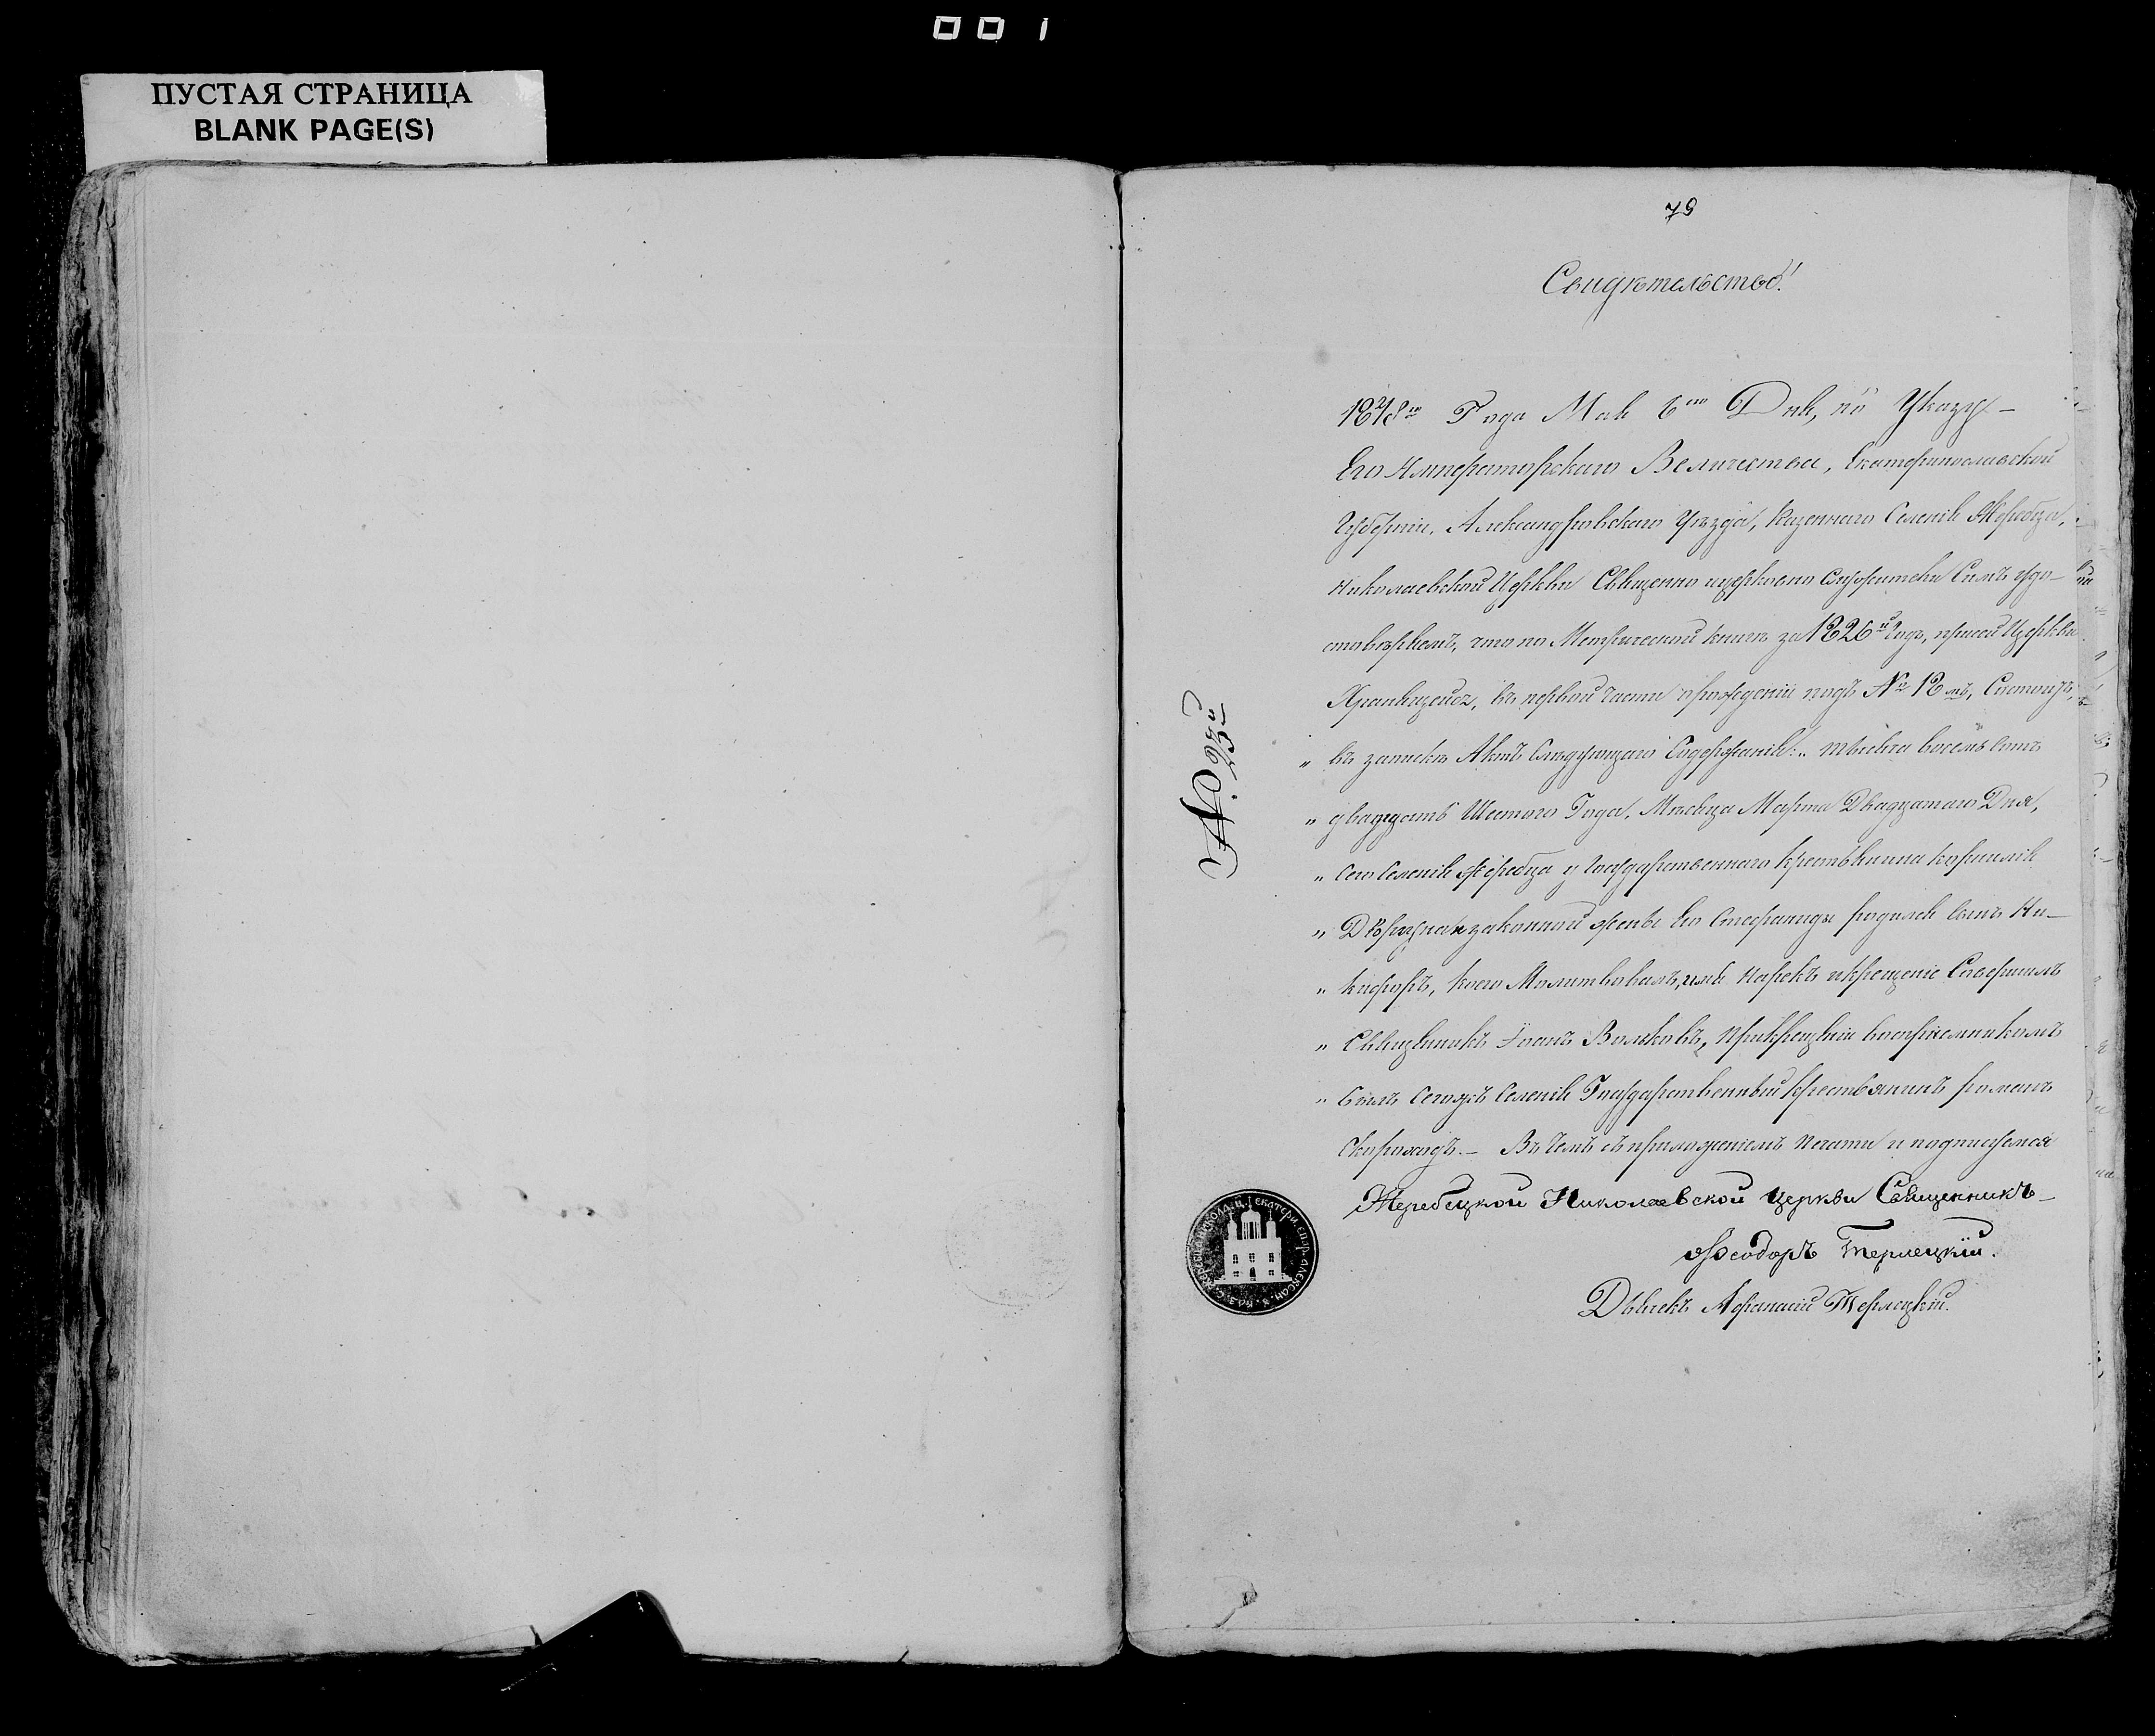 001
ПУСТАЯ СТРАНИЦА
BLANK PAGE(S)
79
Свидѣтельство!
1848го Года Мая 6го Дня, по Указу –
Его Императорскаго Величества, Екатеринославской
Губерніи, Александровскаго Уѣзда, Казеннаго Селенія Жеребца,
Николаевской Церкви Священно и церковно Служители Симъ удо–
стовѣряемъ, что по Метрической книгѣ за 1826й Годъ, при сей Церкви
Хранящейся, въ первой части о рожденіи подъ № 12мъ, Состоитъ,
„ въ запискѣ Актъ Слѣдующаго Содержанія: „ тысяча восемь сотъ
„ двадцать Шестого Года, Мѣсяца Марта Двадцатаго Дня,
„ Сего Селенія Жеребца у Государственнаго крестьянина Корнилія
„ законной жены Его Стефаниды родился Сынъ Ни–
„ кифоръ, коего Молитвовалъ, имя нарекъ и крещеніе Совершилъ
„ Священникъ Іоанъ Волковъ, При крещеніи воспріемникомъ
„ былъ Сегожъ Селенія Государственный крестьянинъ романъ
Скороходъ. – Въ чемъ съ приложеніемъ печати и подписуемся
Жеребецкой Николаевской Церкви Священникъ –
Феодоръ Терлецкій.
Дьячекъ Афанасій Терлецкій.
№ 23й